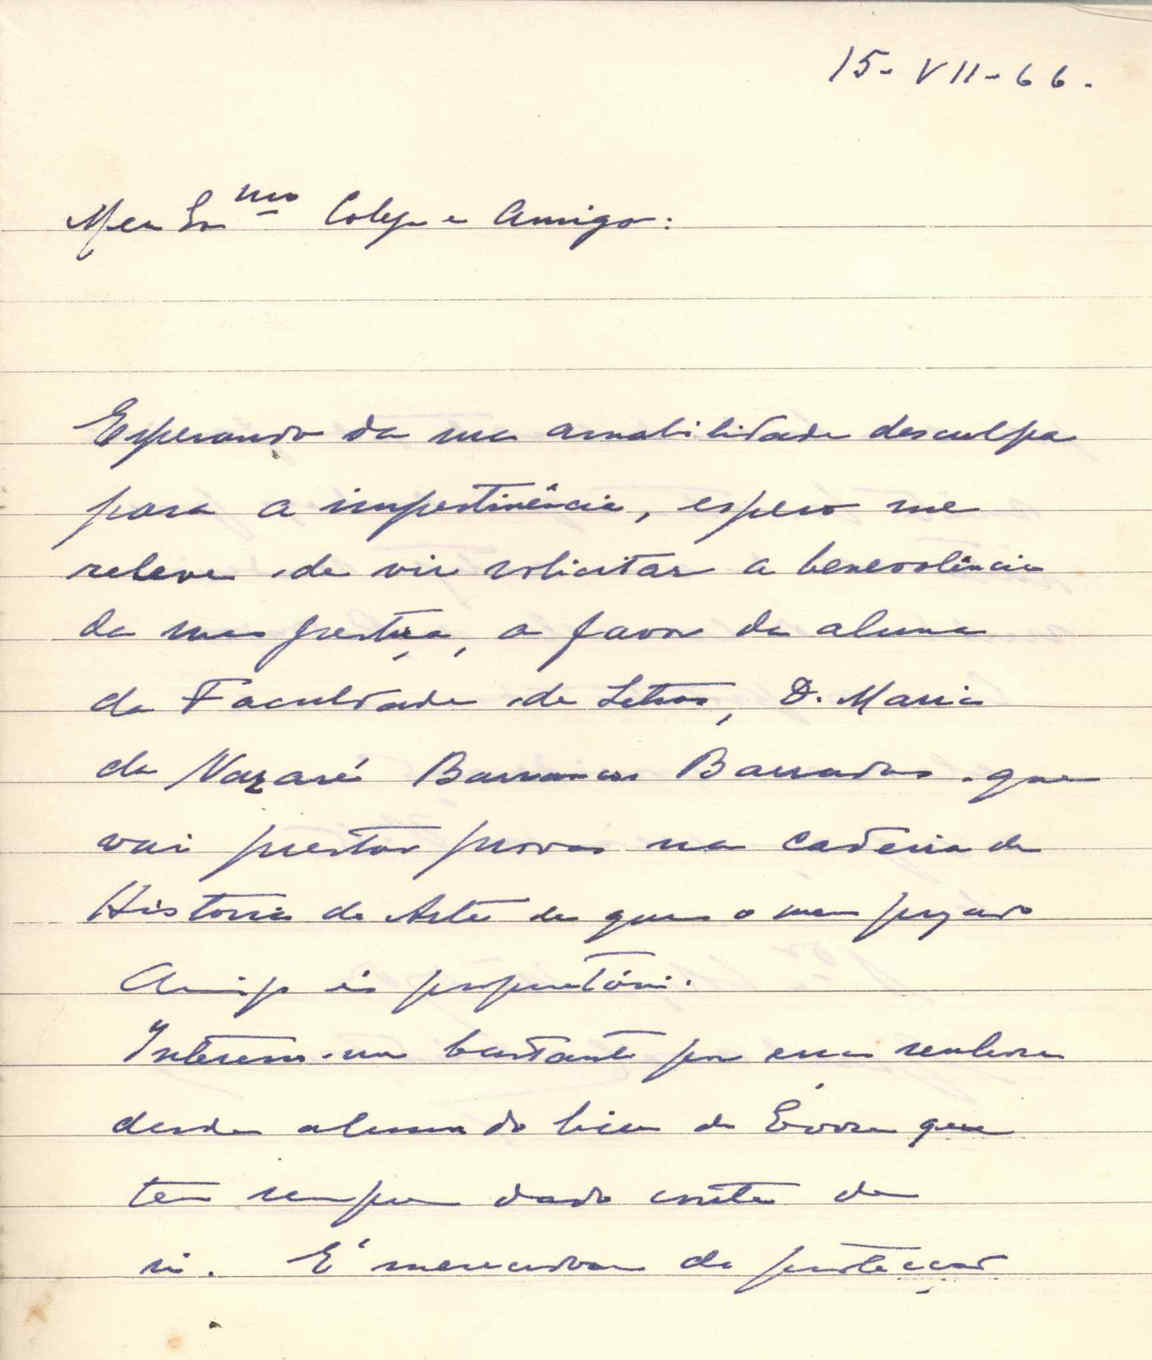 15-VII-66.
Meu Exmo Colega e Amigo:
Esperando da sua amabilidade desculpa
para a impertinência, espero me
releve de vir solicitar a benevolência
da sua justiça, a favor da aluna
da Faculdade de Letras, D. Maria
da Nazaré Barrancos Barradas que
vai prestar provas na cadeira de
História da Arte de que o meu prezado
Amigo é proprietário.
Interessa-me bastante por essa senhora
desde aluna do liceu de Évora que
tem sempre dado conta de
si. É merecedora da protecção